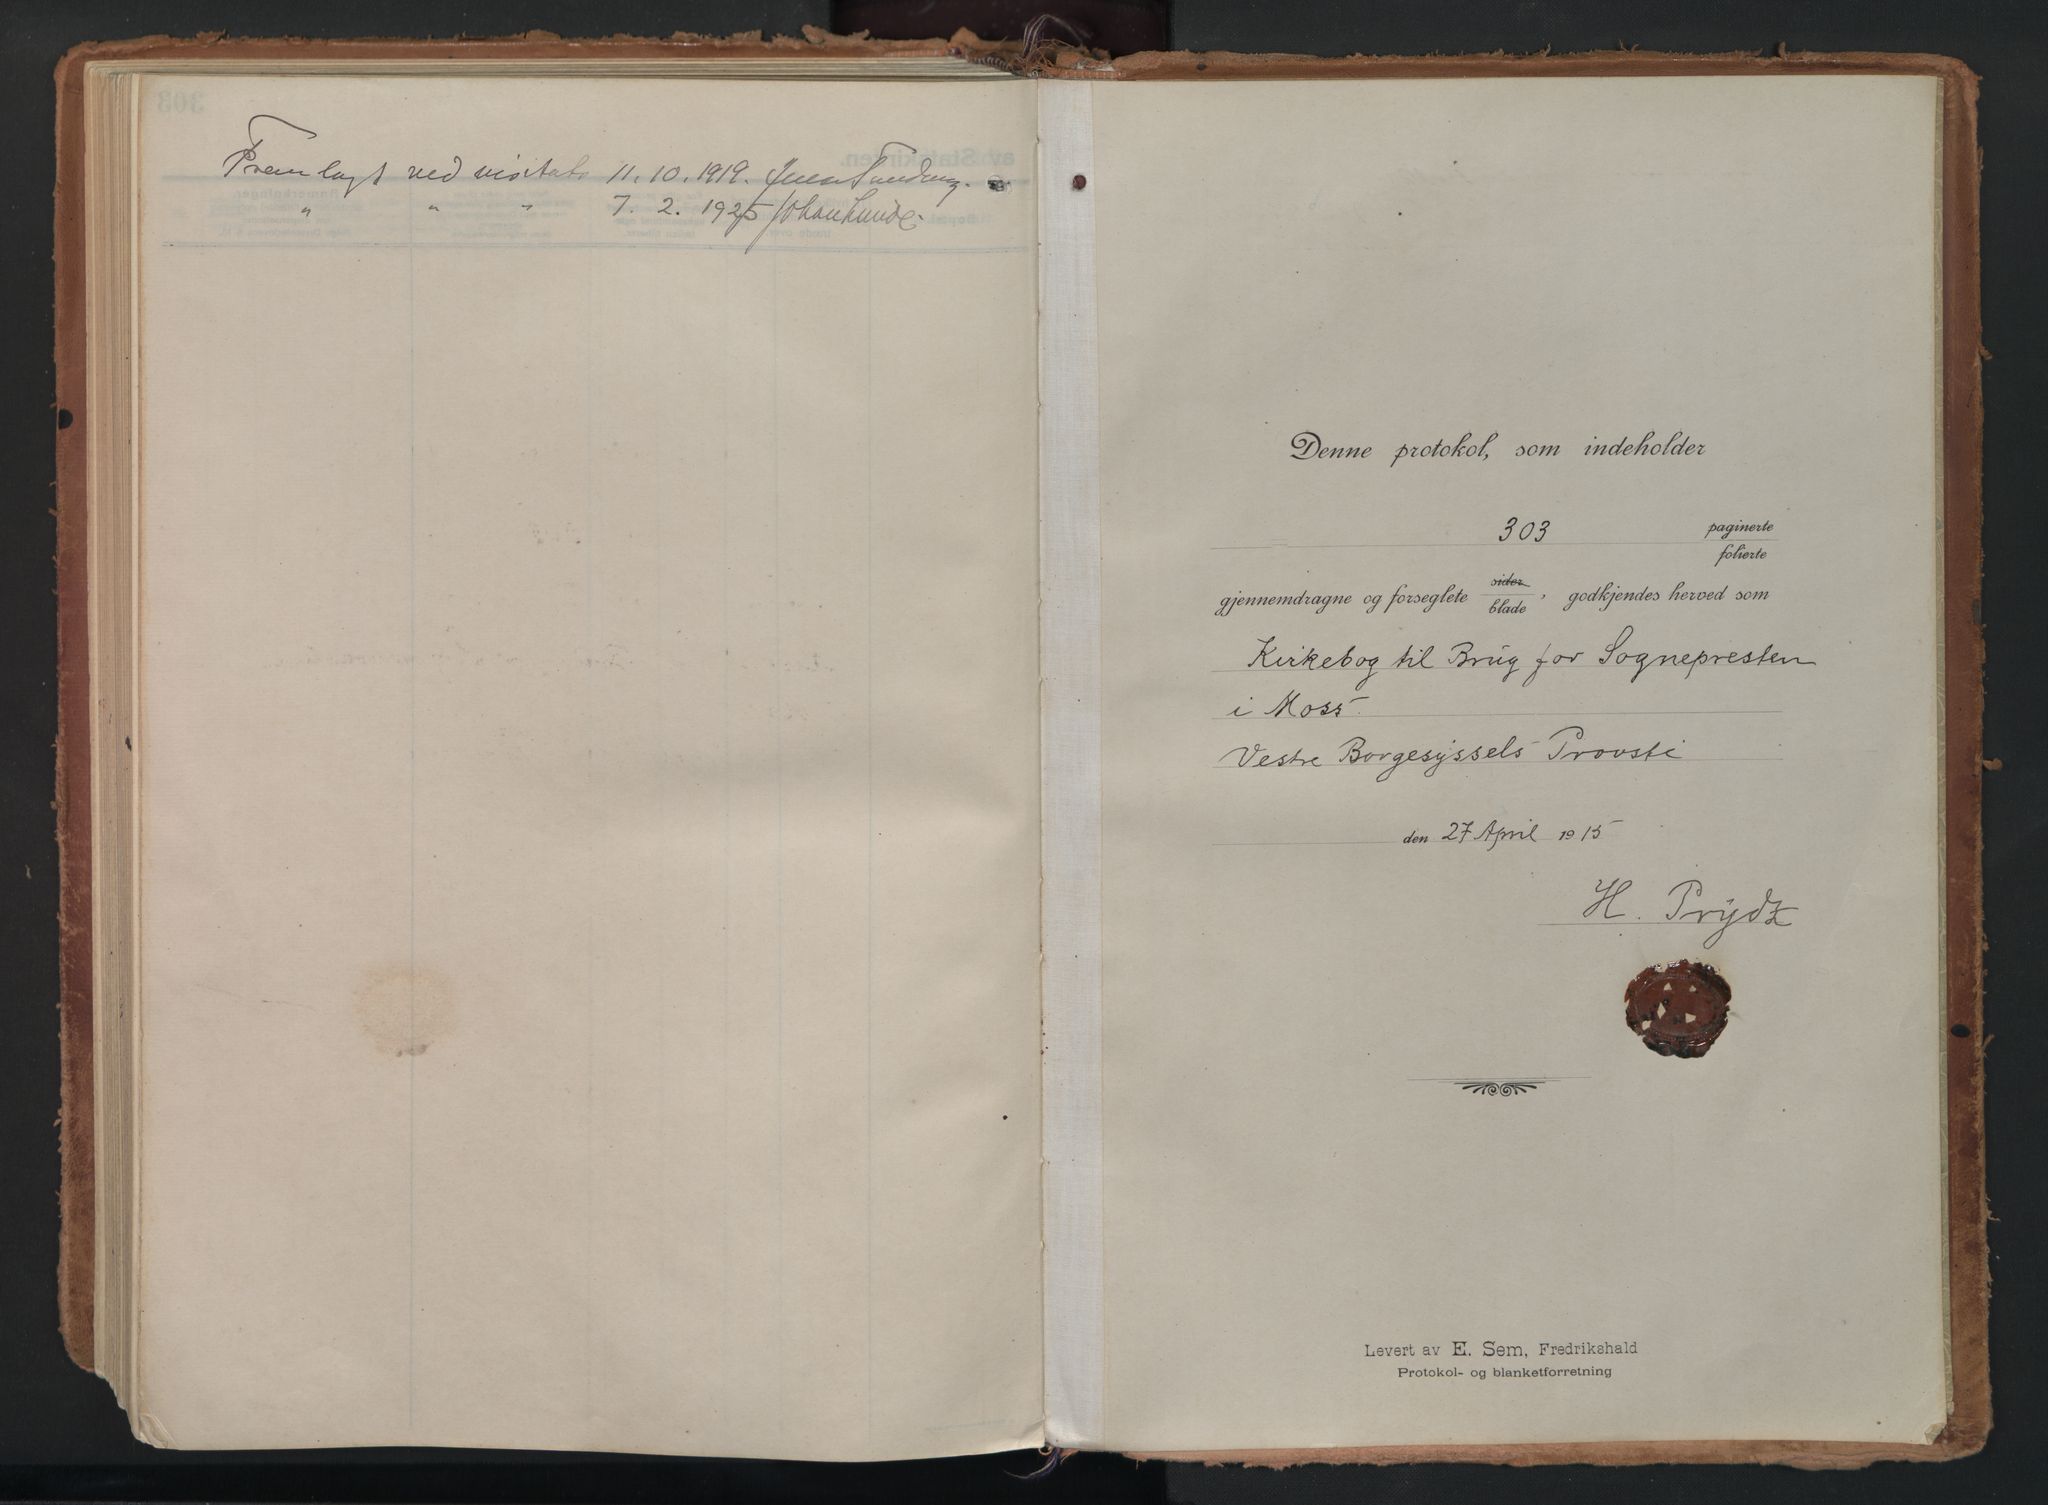 Fremlagt ved visitats 11.10.1919. Jens Tandberg.
" " " 7.2.1925 Johan Lunde.
Denne protokol, som indeholder
303 paginerte
folierte
gjennemdragne og forseglete sider
blade, godkjendes herved som
Kirkebog til Brug for Sognepresten
i Moss.
Vestre Borgesyssels Provsti
den 27 April 1915
H. Prydz
Levert av E. Sem, Fredrikshald
Protokol- og blanketforretning